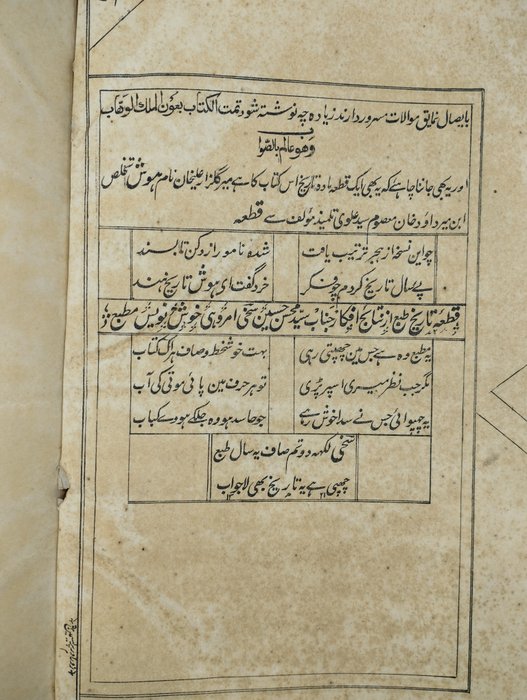 بایصال نمایق موالات مسرور دارند زیاده چه نوشته شود تمت الکتاب بعون الملک الوهاب
وهو عالم بالصواب
اور یہ بھی جاننا چاہئے کہ یہ بھی ایک قطعہ مادہ تاریخ اس کتاب کا ہے میر گلزار علیخان نام هوش تخلص
ابن میر داود خان معصوم سید علوی تلمیذ مؤلف سے قطعه
چو این نسخه از هجر ترتیب یافت شده نامور از دکن تا بسند
پی سال تاریخ کردم چو فکر خرد گفت ای هوش تاریخ هند
قطعه تاریخ طبع از نتایج افکار جناب سید محسن حسین سخی امروہی خوش نویس مطبع ہذا
یہ مطبع وہ ہے جس مین چھپتی رہی بہت خوشخط و صاف ہر اک کتاب
مگر جب نظر میری اسپر پڑی تو ہر حرف مین پائی موتی کی آب
یہ چھپوائی جس نے سدا خوش رہے جو حاسد ہو وہ جلکے ہووے کباب
سخی لکہہ دو تم صاف یہ سال طبع
چھپی ہے یہ تاریخ بھی لاجواب